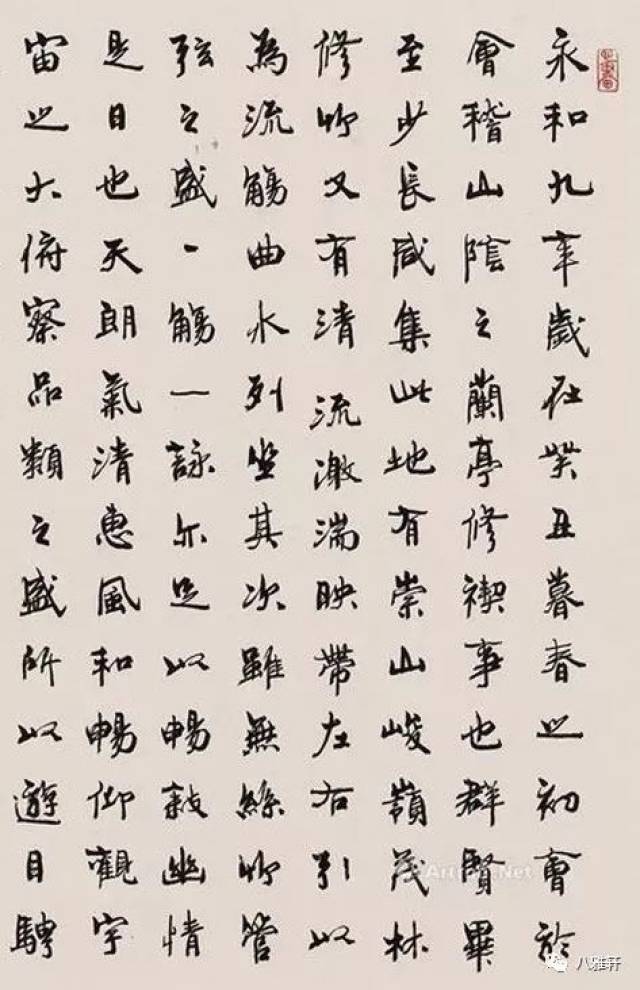 永和九年歲在癸丑暮春之初會於
會稽山陰之蘭亭修禊事也群賢畢
至少長咸集此地有崇山峻嶺茂林
修竹又有清流激湍映帶左右引以
為流觴曲水列坐其次雖無絲竹管
弦之盛一觴一詠亦足以暢敍幽情
是日也天朗氣清惠風和暢仰觀宇
宙之大俯察品類之盛所以遊目騁
Artron.Net
八雅轩